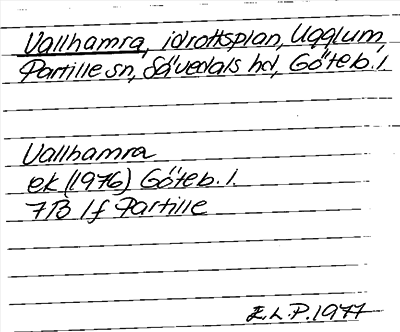 Vallhamra, idrottsplan, Ugglum,
Partille sn, Sävedals hd, Göteb. l.
Vallhamra
ek (1976) Göteb. l.
7B 1f Partille
E.L.P. 1977